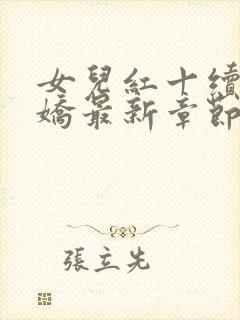 女兒紅十續
嬌最新章節
張立先